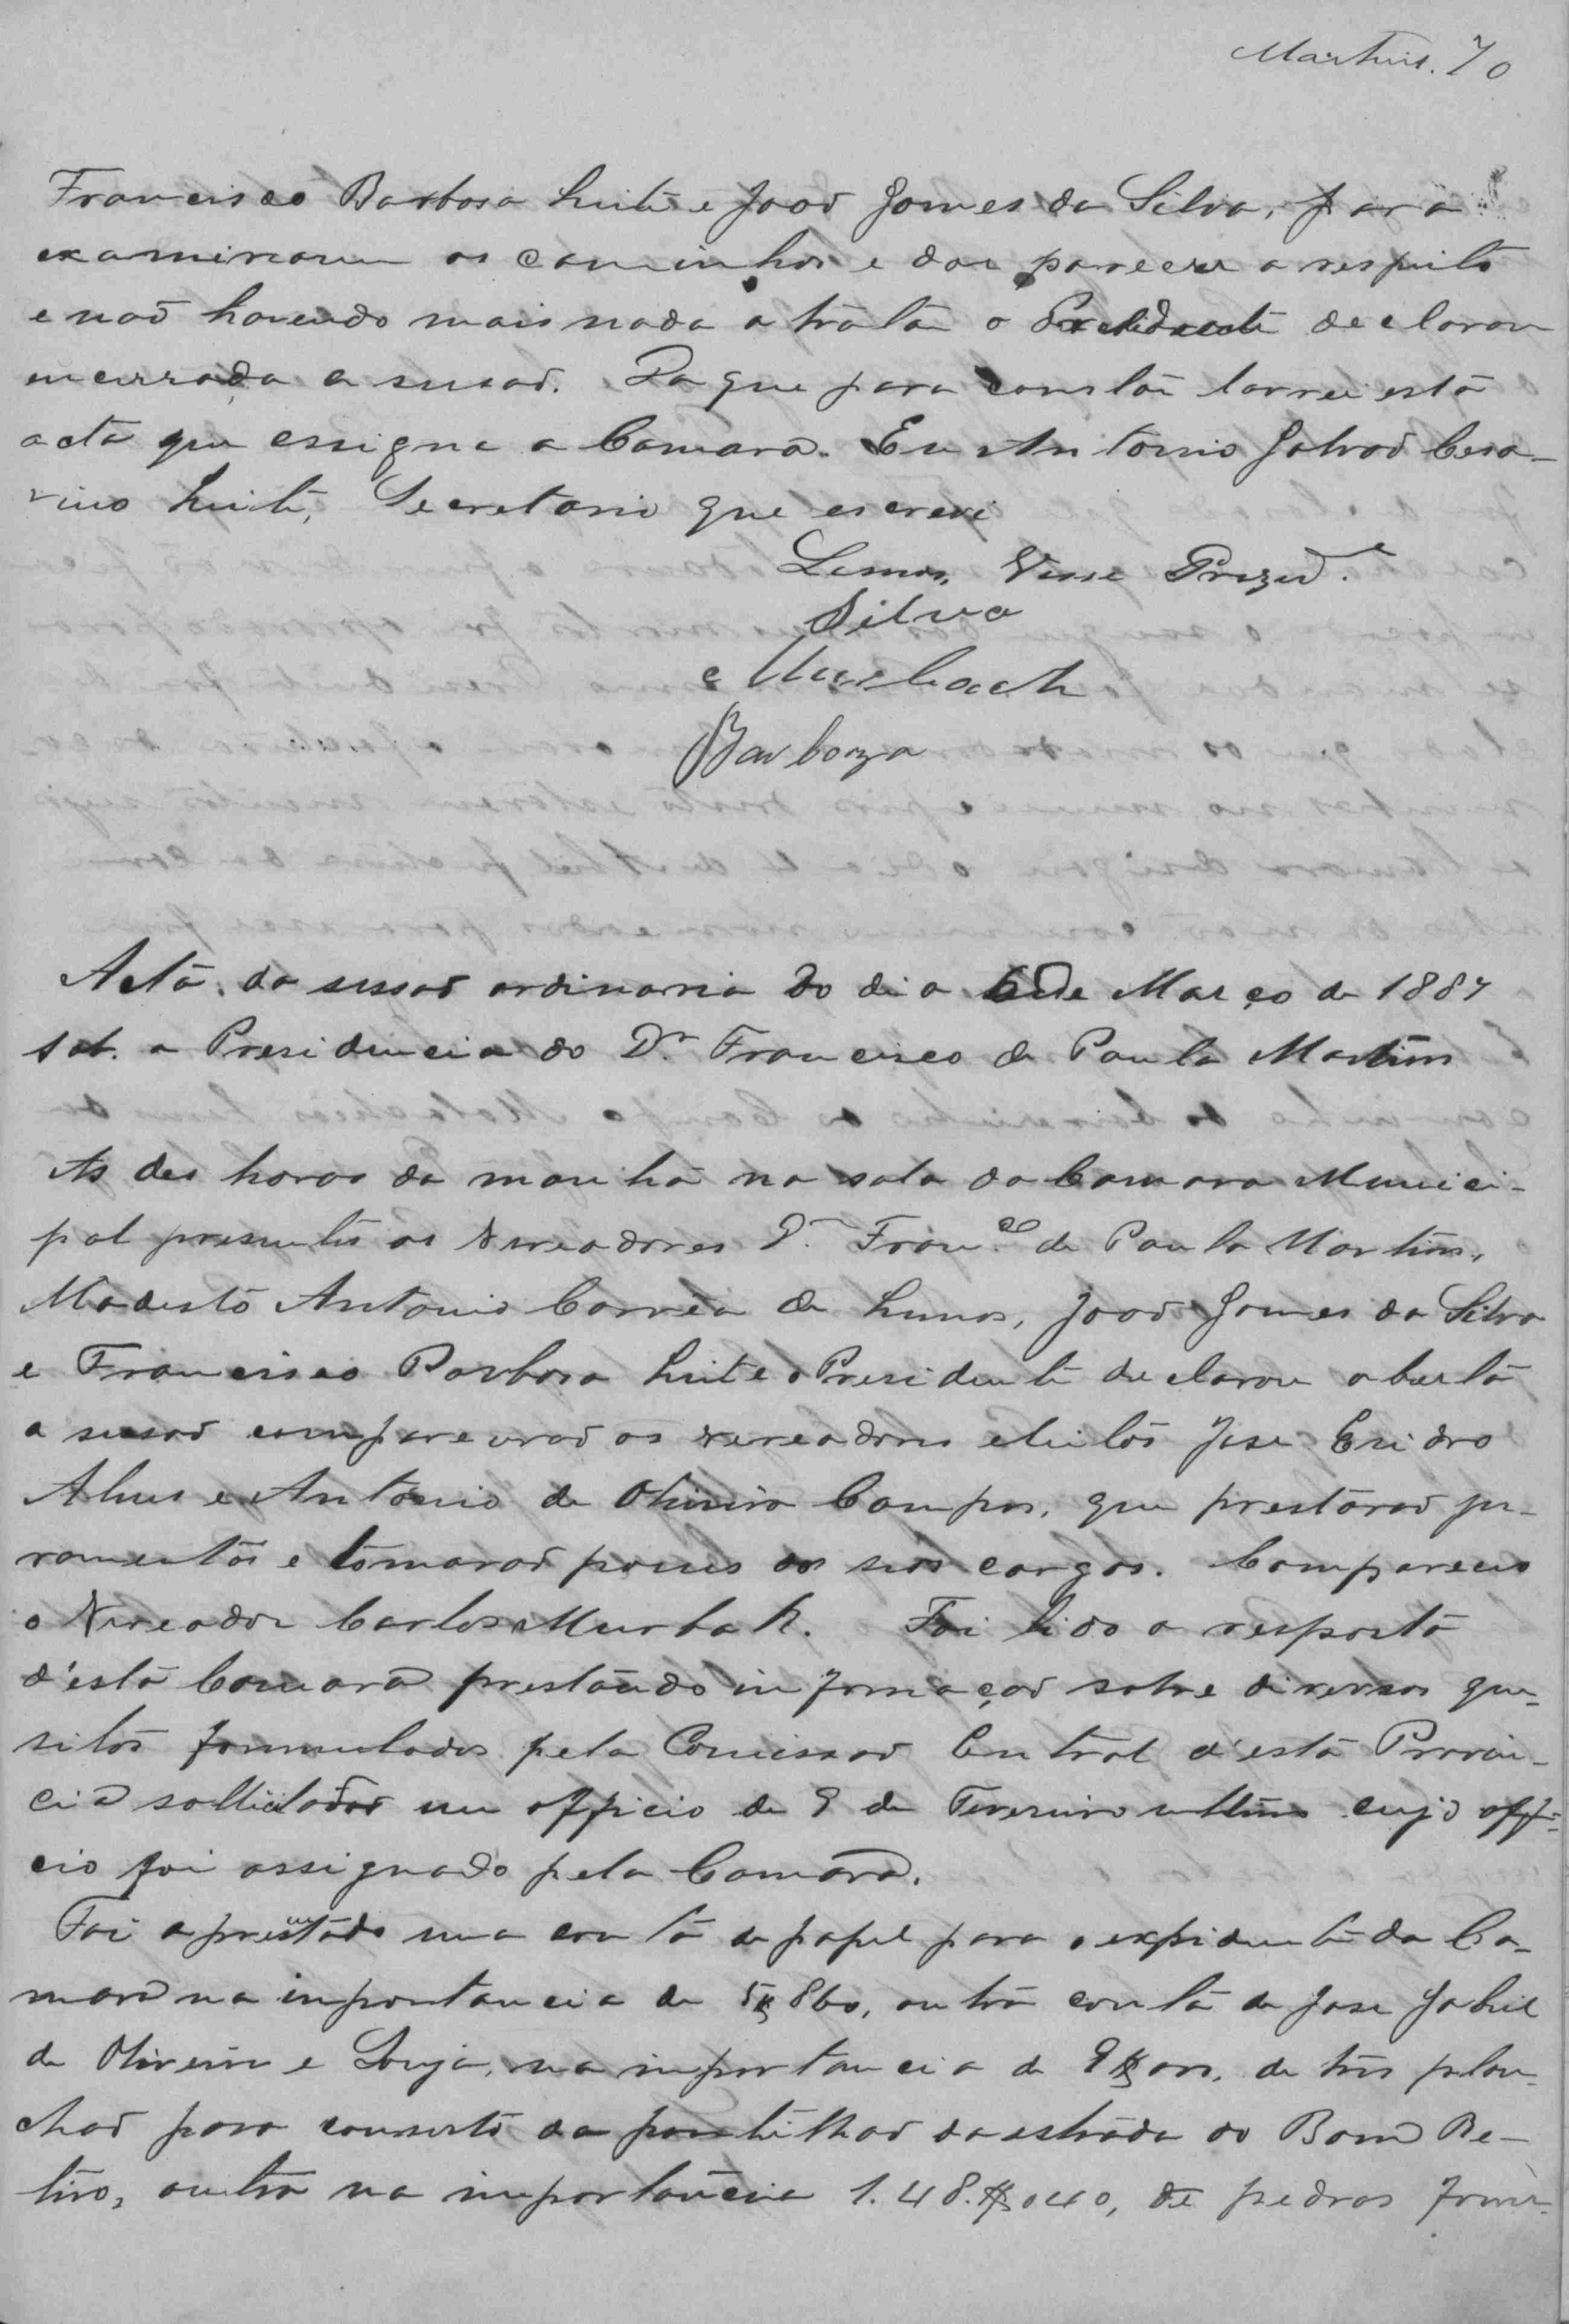 Martins. 70
Francisco Barbosa Leite e João Gomes da Silva, para
examinarem os caminhos e dar parecer a respeito
e não havendo mais nada a tratar o Presidente declarou
encerrada a sessão. Do que para constar lavrei esta
acta que assigna a Camara. Eu Antonio Galvão Cesa-
rino Leite, Secretario que escrevi
Lemos, Visse Prezid.e
Silva
Murbach
Barboza
Acta da sessão ordinaria do dia 6 de Março de 1887
sob. a Presidencia do Dr. Francisco de Paula Martins
As des horas da manhã na sala da Camara Munici-
pal presentes os Vereadores Dr. Franco de Paula Martins,
Modesto Antonio Corrêa de Lemos, João Gomes da Silva
e Francisco Barbosa Leite o Presidente declarou aberta
a sessão comparecerão os vereadores eleitos Jose
Alves e Antonio de Oliveira Campos, que prestarão ju-
ramentos e tomarão posses dos seos cargos. Compareceo
o Vereador Carlos Murbak. Foi lido a resposta
d'esta Camara prestando informação sobre diversos que-
sitos formulados pela Comissão Central d'esta Provin-
cia sollicitados em officio de 9 de Fevereiro ultimo cujo offi-
cio foi assignado pela Camara.
Foi apresentado uma conta de papel para o expidente da Ca-
mara na importancia de 5$860, outra conta de Jose Gabriel
de Oliveira e Souza, na importancia de 9$000, de tres plan-
chas para conserto da pontilhão da estrada do Bom Re-
tiro, outra na importancia 1.48.$040, de pedras forne-